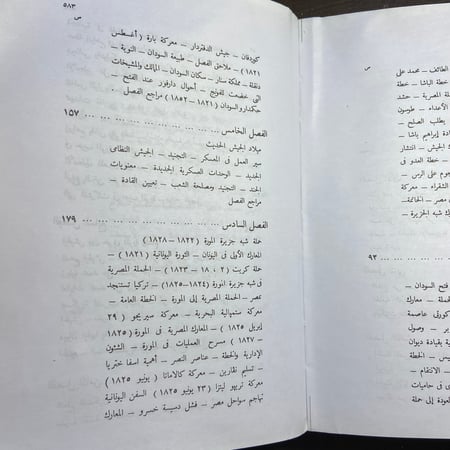 ٥٨٣
ص
كوردفان – جيش الدفتردار – معركة بارة ( أغسطس
١٨٢١ ) – ملاحق الفصل – طبيعة السودان – النوبة –
دنقلة – مملكة سنار – سكان السودان – الممالك والمشيخات
التى خضعت للفونج – أحوال دارفور عند الفتح –
حكمدارو السودان ( ١٨٢١ – ١٨٥٢ ) مراجع الفصل
الفصل الخامس ... ... ... ... ... ... ١٥٧
ميلاد الجيش الحديث
سير العمل فى المعسكر – التجنيد – الجيش النظامى
الجديد – الوحدات العسكرية الجديدة – معنويات
الجند – التجنيد ومصلحة الشعب – تعيين القادة –
مراجع الفصل
الفصل السادس ... ... ... ... ... ... ١٧٩
حملة شبه جزيرة المورة ( ١٨٢٢ – ١٨٢٨ )
المعارك الأولى فى اليونان – الثورة اليونانية ( ١٨٢١ ) –
حملة كريت ( ١٨٢٢ – ١٨٢٣ ) – الحملة المصرية
فى شبه جزيرة المورة ( ١٨٢٤–١٨٢٥ ) – تركيا تستنجد
بمصر – الحملة المصرية إلى المورة – الخطة العامة –
معركة ستمبالية البحرية – معركة سيريجو ( ٢٩
إبريل ١٨٢٥ ) – المعارك المصرية فى المورة ( ١٨٢٥
– ١٨٢٧ ) – مسرح العمليات فى المورة – الشئون
الإدارية والخطة – عناصر النصر – أهمية اسفاختريا
– تسليم نفارين – معركة كالاماتا ( يونيو ١٨٢٥ )
معركة تريبو ليتزا ( ٢٣ يونيو ١٨٢٥ ) السفن اليونانية
تهاجم سواحل مصر – فشل دسيسة خسرو – المعارك
ص
الطائف – محمد على
خطة الباشا – خطة
لة المصرية – حشد
الأعداء – طوسون
يطلب الصلح –
ادة إبراهيم باشا –
الجيش – انتشار
– خطة العدو فى
هجوم على الرس –
الشقراء – معركة
مصر – الخاتمة.
رك شبه الجزيرة –
... ... ٩٣
فتح السودان –
الحملة – معارك
كورتى عاصمة
بر – وصول
ية بقيادة ديوان
يس – الخطة
– الانتقام –
رى فى حاميات
العودة إلى حملة